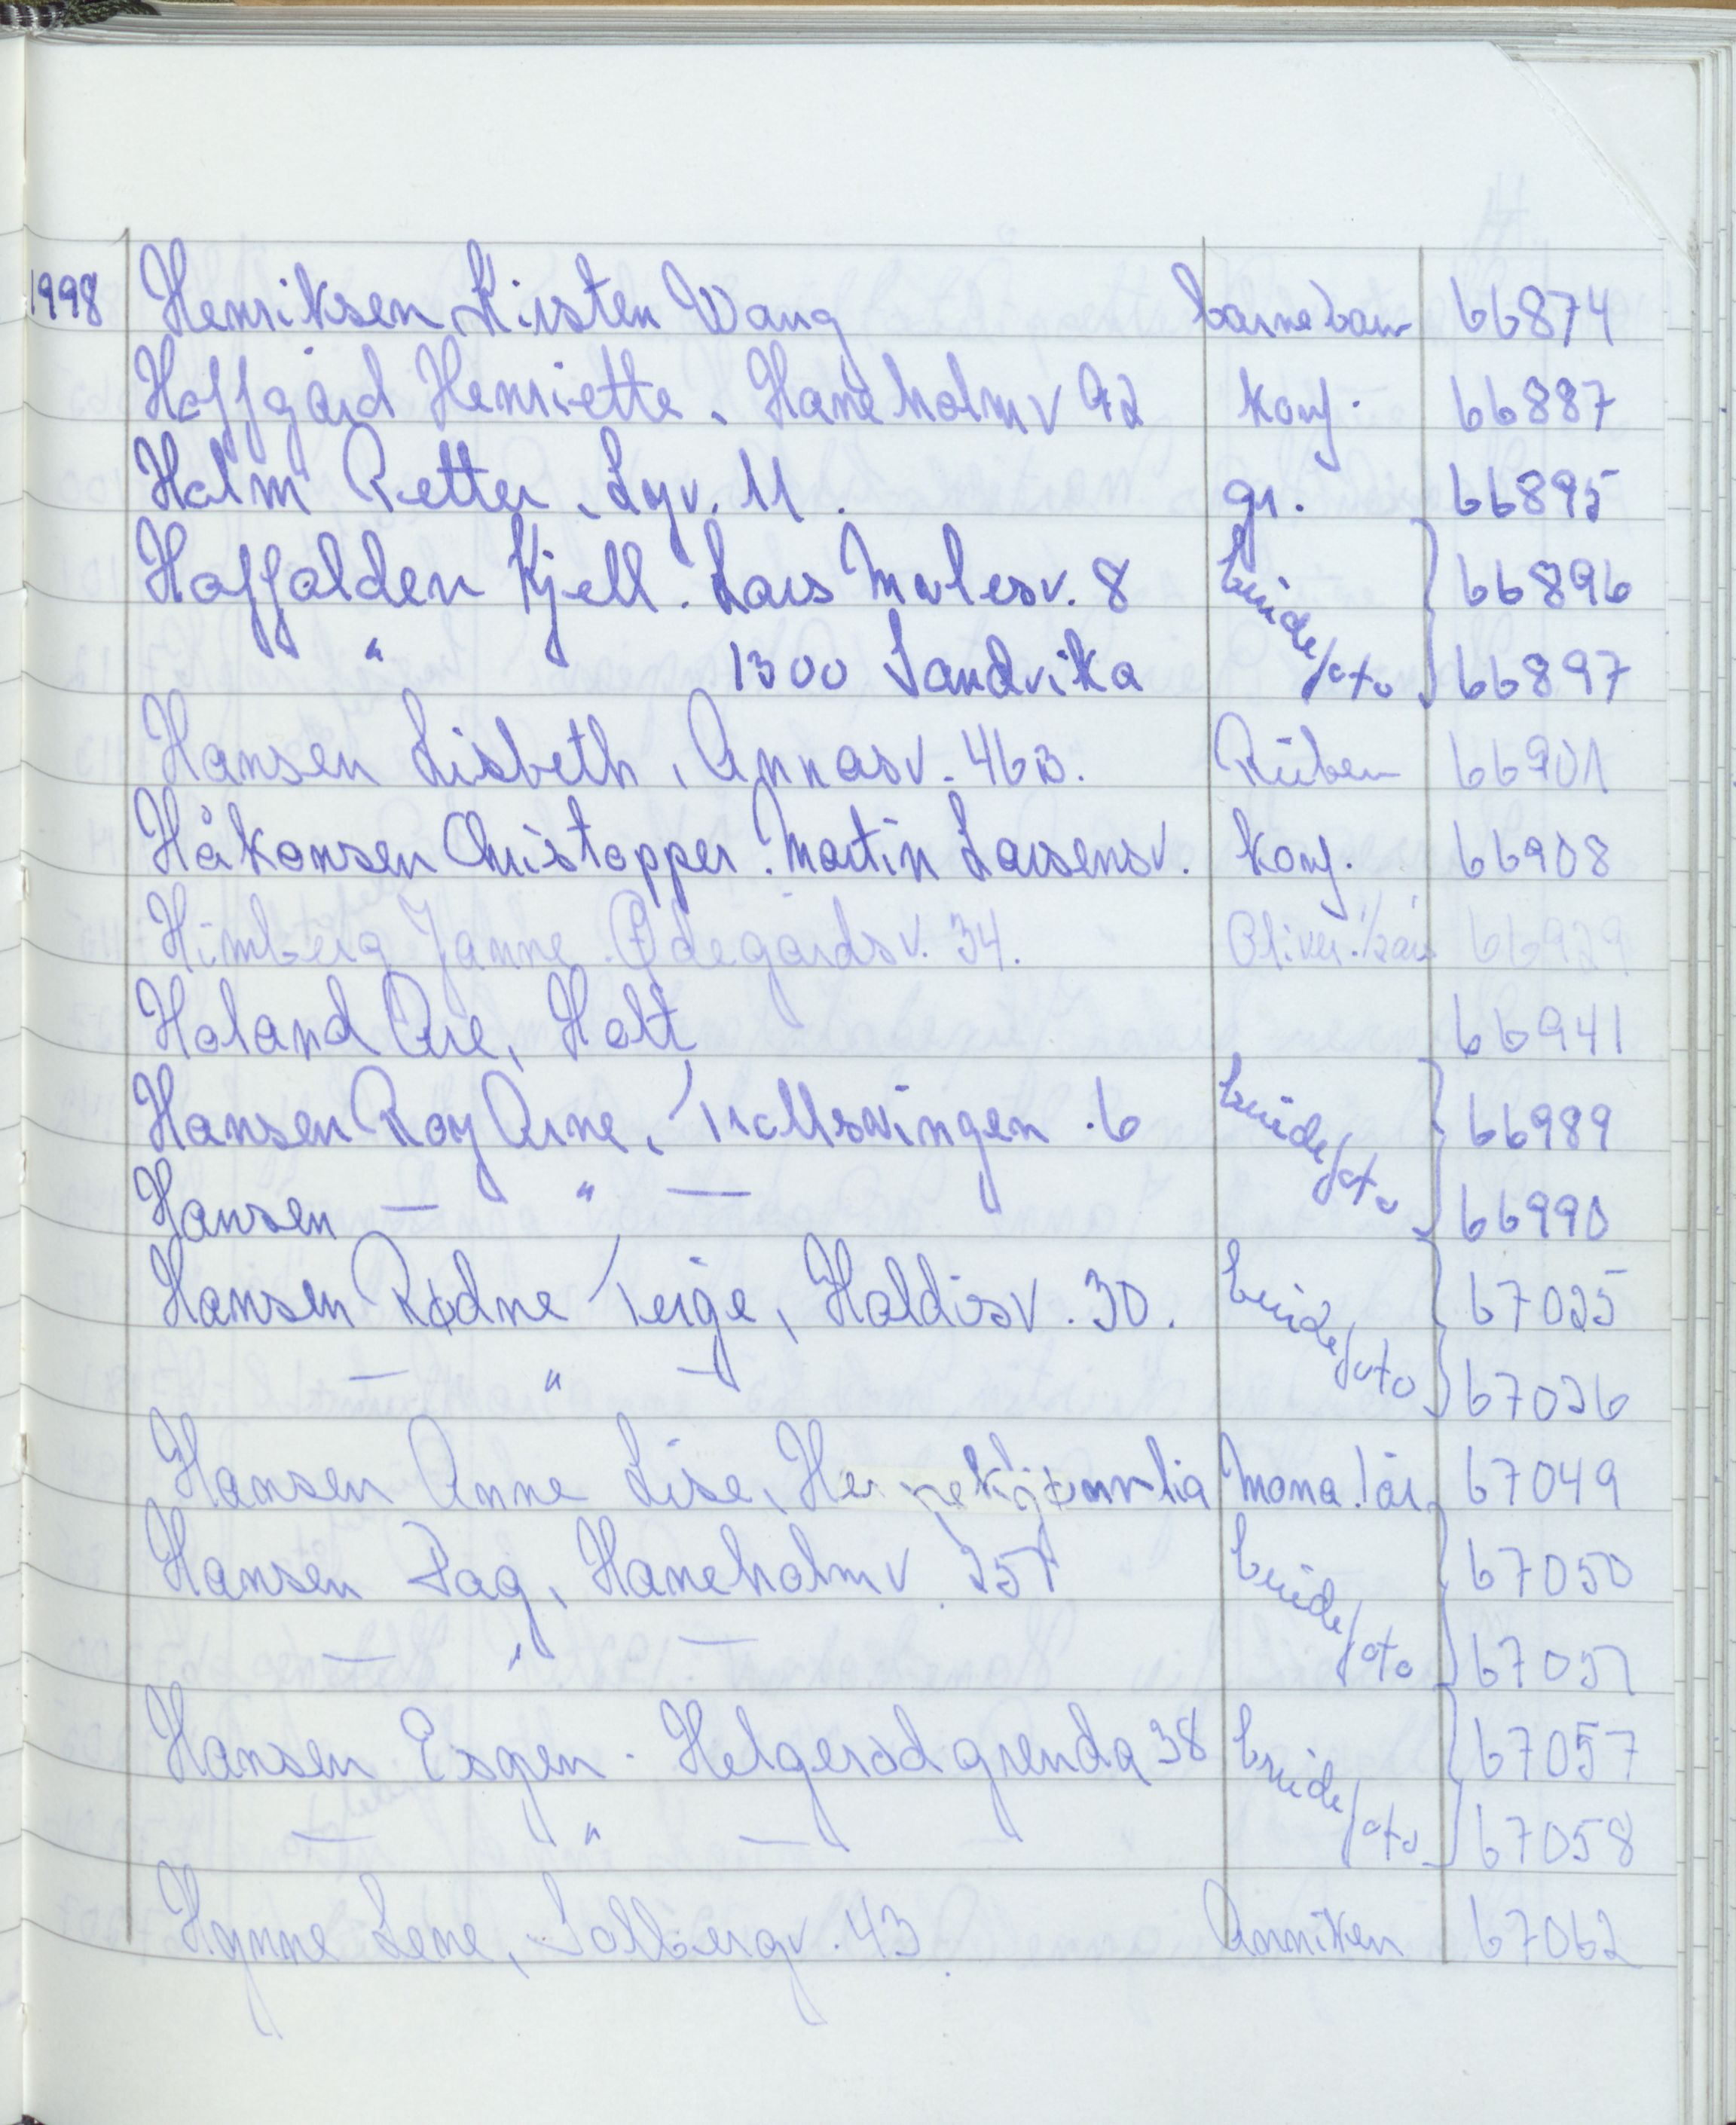 1998 Henriksen Kirsten Wang barnebarn 66874
Hoffgård Henriette. Haneholmv 92 konf. 66887
Holm Petter. Lyv. 11. gr. 66895
Hoffolden Kjell. Lars Mulesv. 8 brude 66896
" 1300 Sandvika foto 66897
Hansen Lisbeth, Annasv. 46B. Rüben 66901
Håkonsen Christopper. Martin Larsensv. konf. 66908
Himberg Janne. Ødegårdsv. 34. Oliver. 1/2 år 66929
Holand Are, Holt 66941
Hansen Roy Arne, Trollsvingen . 6 brude 66989
Hansen — " — foto 66990
Hansen Rødne Terje, Haldisv. 30. brude 67025
— " — foto 67026
Hansen Anne Lise, Mona. 1 år. 67049
Hansen Dag, Haneholmv. brude 67050
— " — foto 67051
Hansen Espen. Helgerød grenda 38 brude 67057
— " — foto 67058
Hynne Lene, Solbergv. 43 Anniken 67062